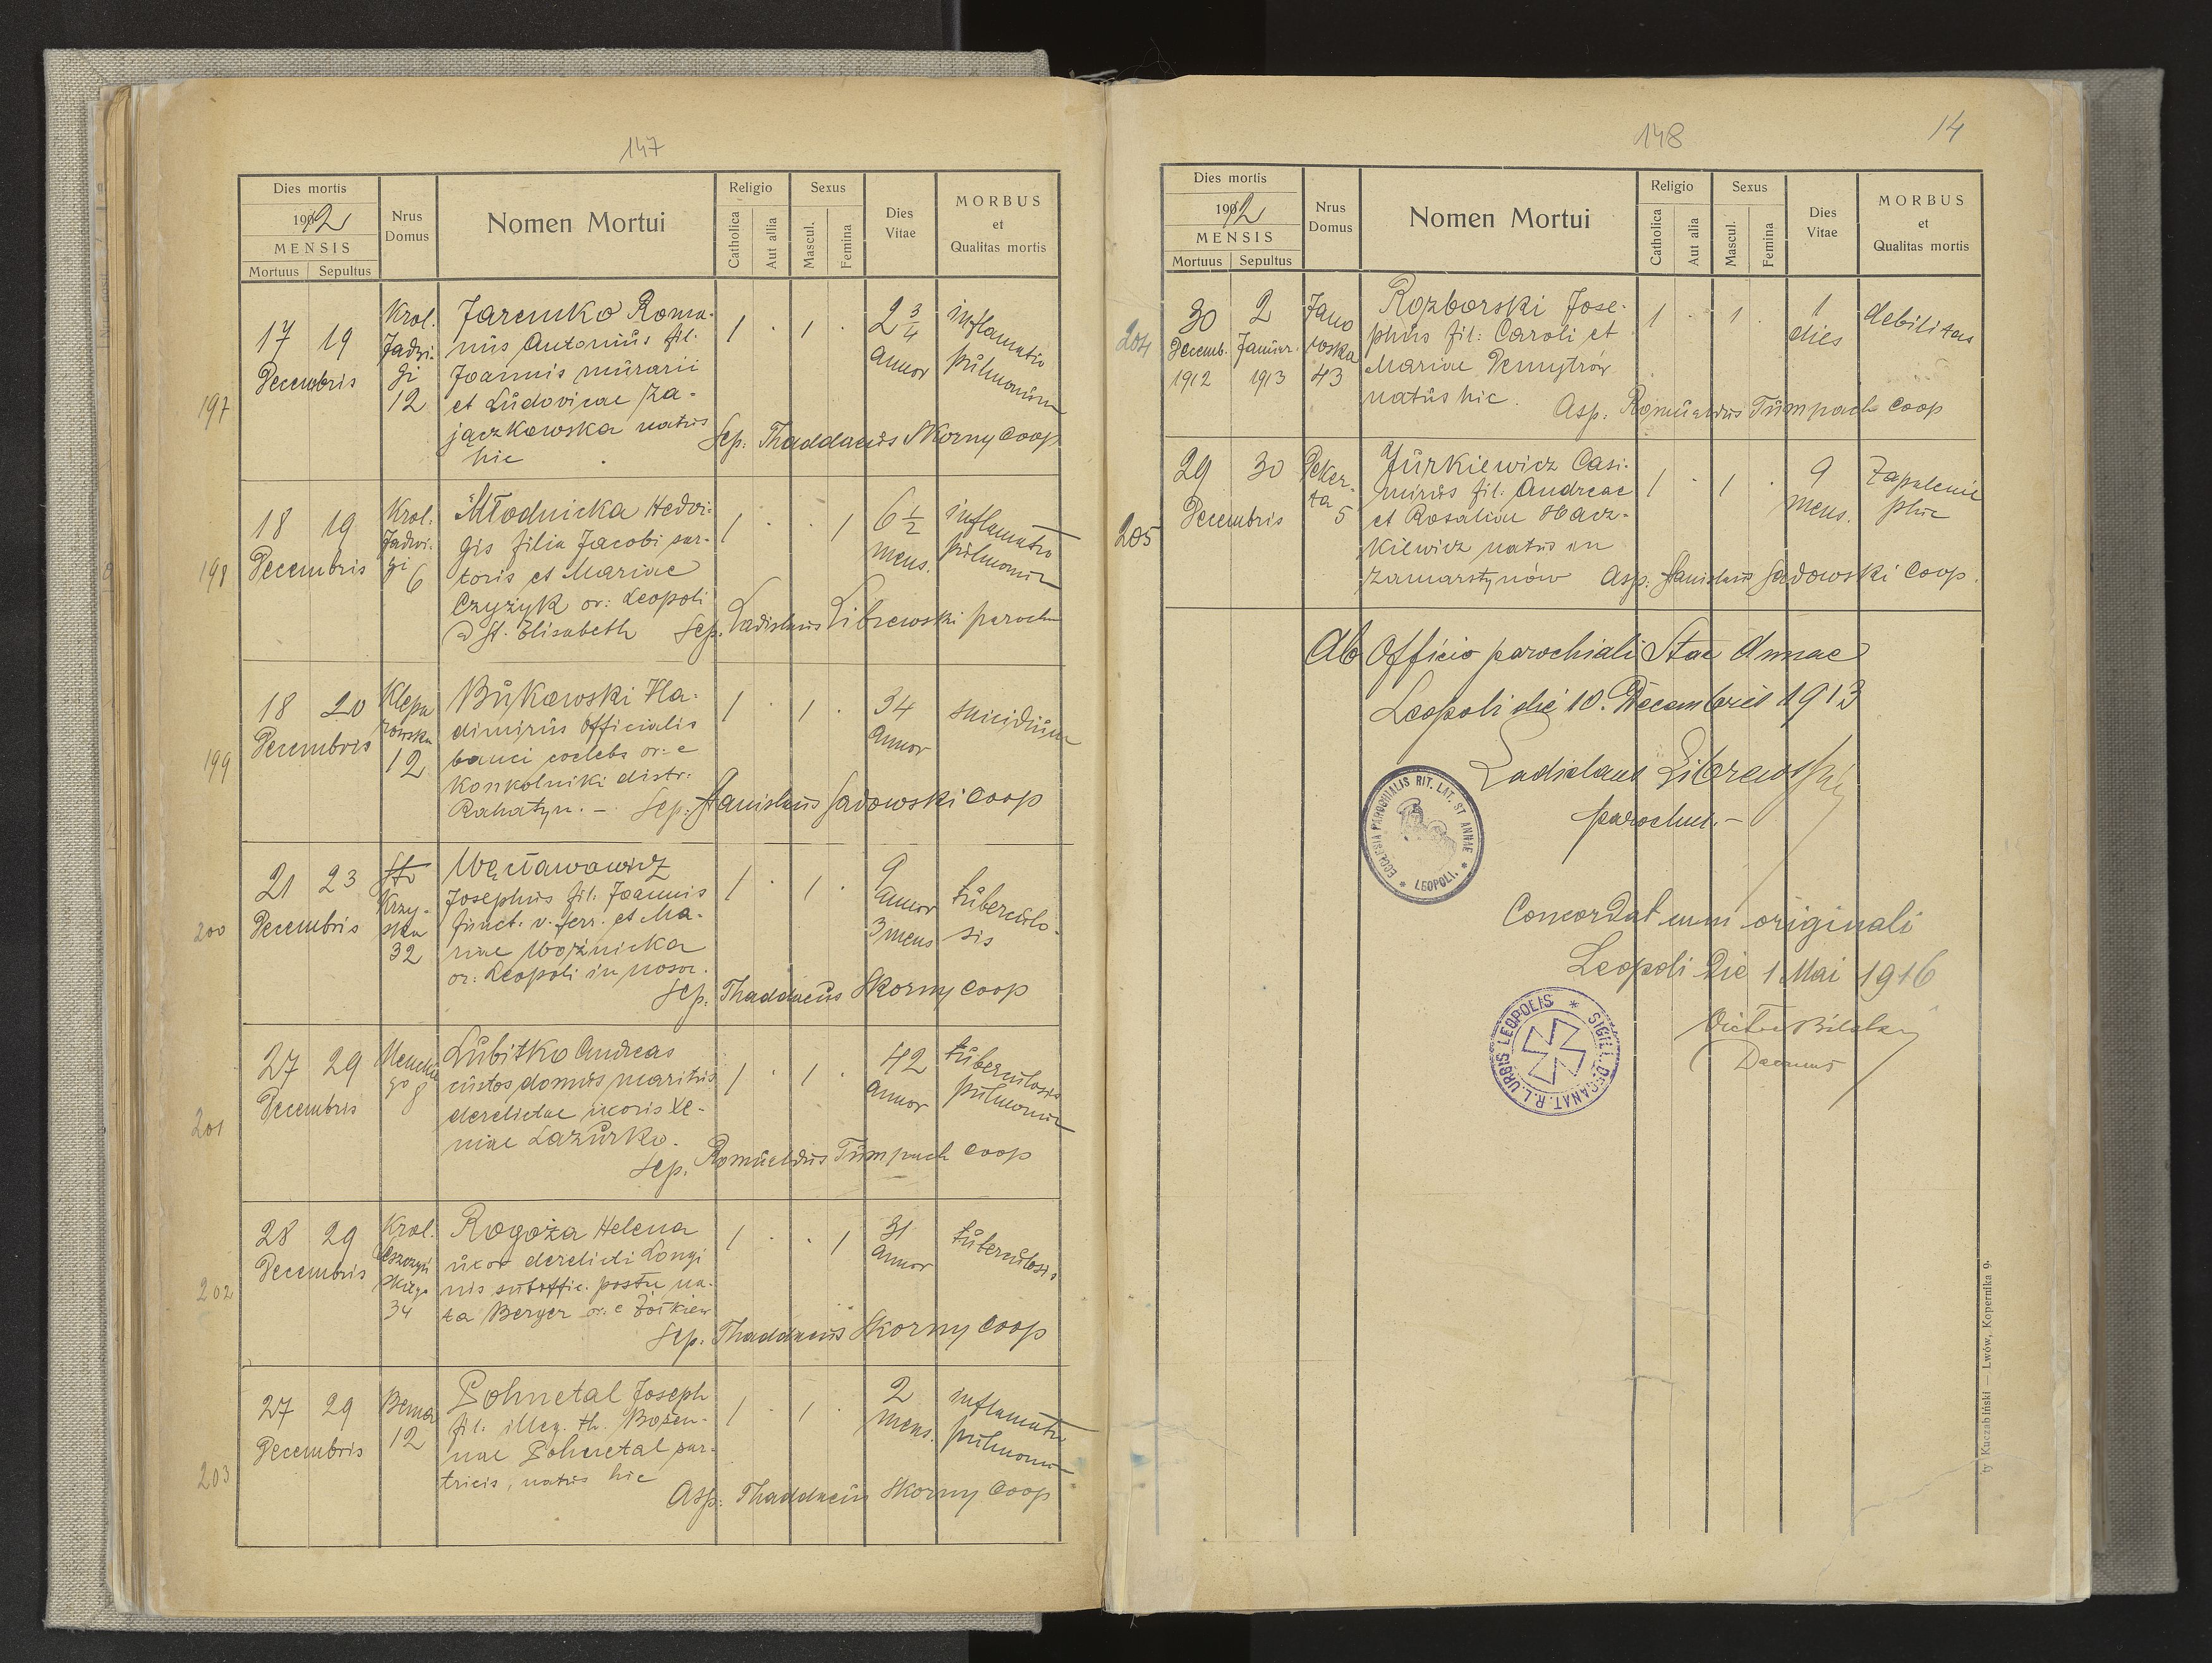 147
Dies mortis
1912
MENSIS
Mortuus Sepultus
Nrus Domus
Nomen Mortui
Religio
Catholica
Aut allia
Sexus
Mascul.
Femina
Dies Vitae
MORBUS
et
Qualitas mortis
197
17 19
Decembris
Krol.
Jadwi-
gi
12
Jaremko Roma-
nus Antonius fil.
Joannis murarii
et Ludovicae Za-
jączkowska natus
hic
1 . 1 .
2 3/4
annor
inflamatio
pulmonum
Sep. Thaddaeus Skorny coop
198
18 19
Decembris
Krol.
Jadwi-
gi
6
Młodnicka Hedvi-
gis filia Jacobi sar-
toris et Mariae
Czyżyk or: Leopoli
a St. Elisabeth
1 . . 1
6 1/2
mens.
inflamatio
pulmonum
Sep. Ladislaus Librewski parochus
199
18 20
Decembris
Klepa
rowska
12
Bukowski Vla-
dimirus officialis
banci coelebs or: e
Konkolniki distr:
Rohatyn. –
1 . 1 .
34
annor
suicidium
Sep. Stanislaus Sadowski coop
200
21 23
Decembris
Krzy-
ska
32
Josephus fil. Joannis
funct. v. ferr. et Ma-
riae Woźnicka
or: Leopoli in nosoc.
1 . 1 .
9
annor
3 mens
tuberculo-
sis
Sep. Thaddaeus Skorny coop
201
27 29
Decembris
8
Lubitko Andreas
custos domus maritus
derelictae uxoris Xe-
niae Lazurko.
1 . 1 .
42
annor
tuberculosis
pulmonum
Sep. Romualdus Tumpach coop
202
28 29
Decembris
Krol.
Leszczyń
skiego
34
Rogoża Helena
uxor derelicti Longi
nis suboffic. postae na-
ta Berger or: e Żółkiew
1 . . 1
31
annor
tuberculosis
Sep. Thaddaeus Skorny coop
203
27 29
Decembris
Bema
12
Sohnetal Joseph
fil: illeg. th. Rosen-
nae Sohnetal sar-
tricis, natus hic
1 . 1 .
2
mens.
inflamatio
pulmonum
Asp: Thaddaeus Skorny coop
148
14
Dies mortis
1912
MENSIS
Mortuus Sepultus
Nrus Domus
Nomen Mortui
Religio
Catholica
Aut alia
Sexus
Mascul.
Femina
Dies Vitae
MORBUS
et
Qualitas mortis
204
30 2
Decemb. Januar.
1912 1913
Jano
wska
43
Rozborski Jose-
phus fil: Caroli et
Mariae Demytrów
natus hic.
1 . 1 .
1
dies
debilitas
Asp: Romualdus Tumpach coop
205
29 30
Decembris
Peker-
ta
5
Jurkiewicz Casi-
mirus fil: Andreae
et Rosaliae Hacz-
kiewicz natus in
Zamarstynów
1 . 1 .
9
mens.
Zapalenie
płuc
Asp: Stanislaus Sadowski coop.
Ab Officio parochiali Stae Annae
Leopoli die 10. Decembris 1913
Ladislaus Librewski
parochus. –
ECCLESIA PAROCHIALIS RIT. LAT. ST. ANNAE * LEOPOLI. *
Concordat cum originali
Leopoli Die 1 Mai 1916
Decanus
SIGILL. DECANAT. R. L. URBIS LEOPOLIS *
ty Kuczabiński — Lwów, Kopernika 9.